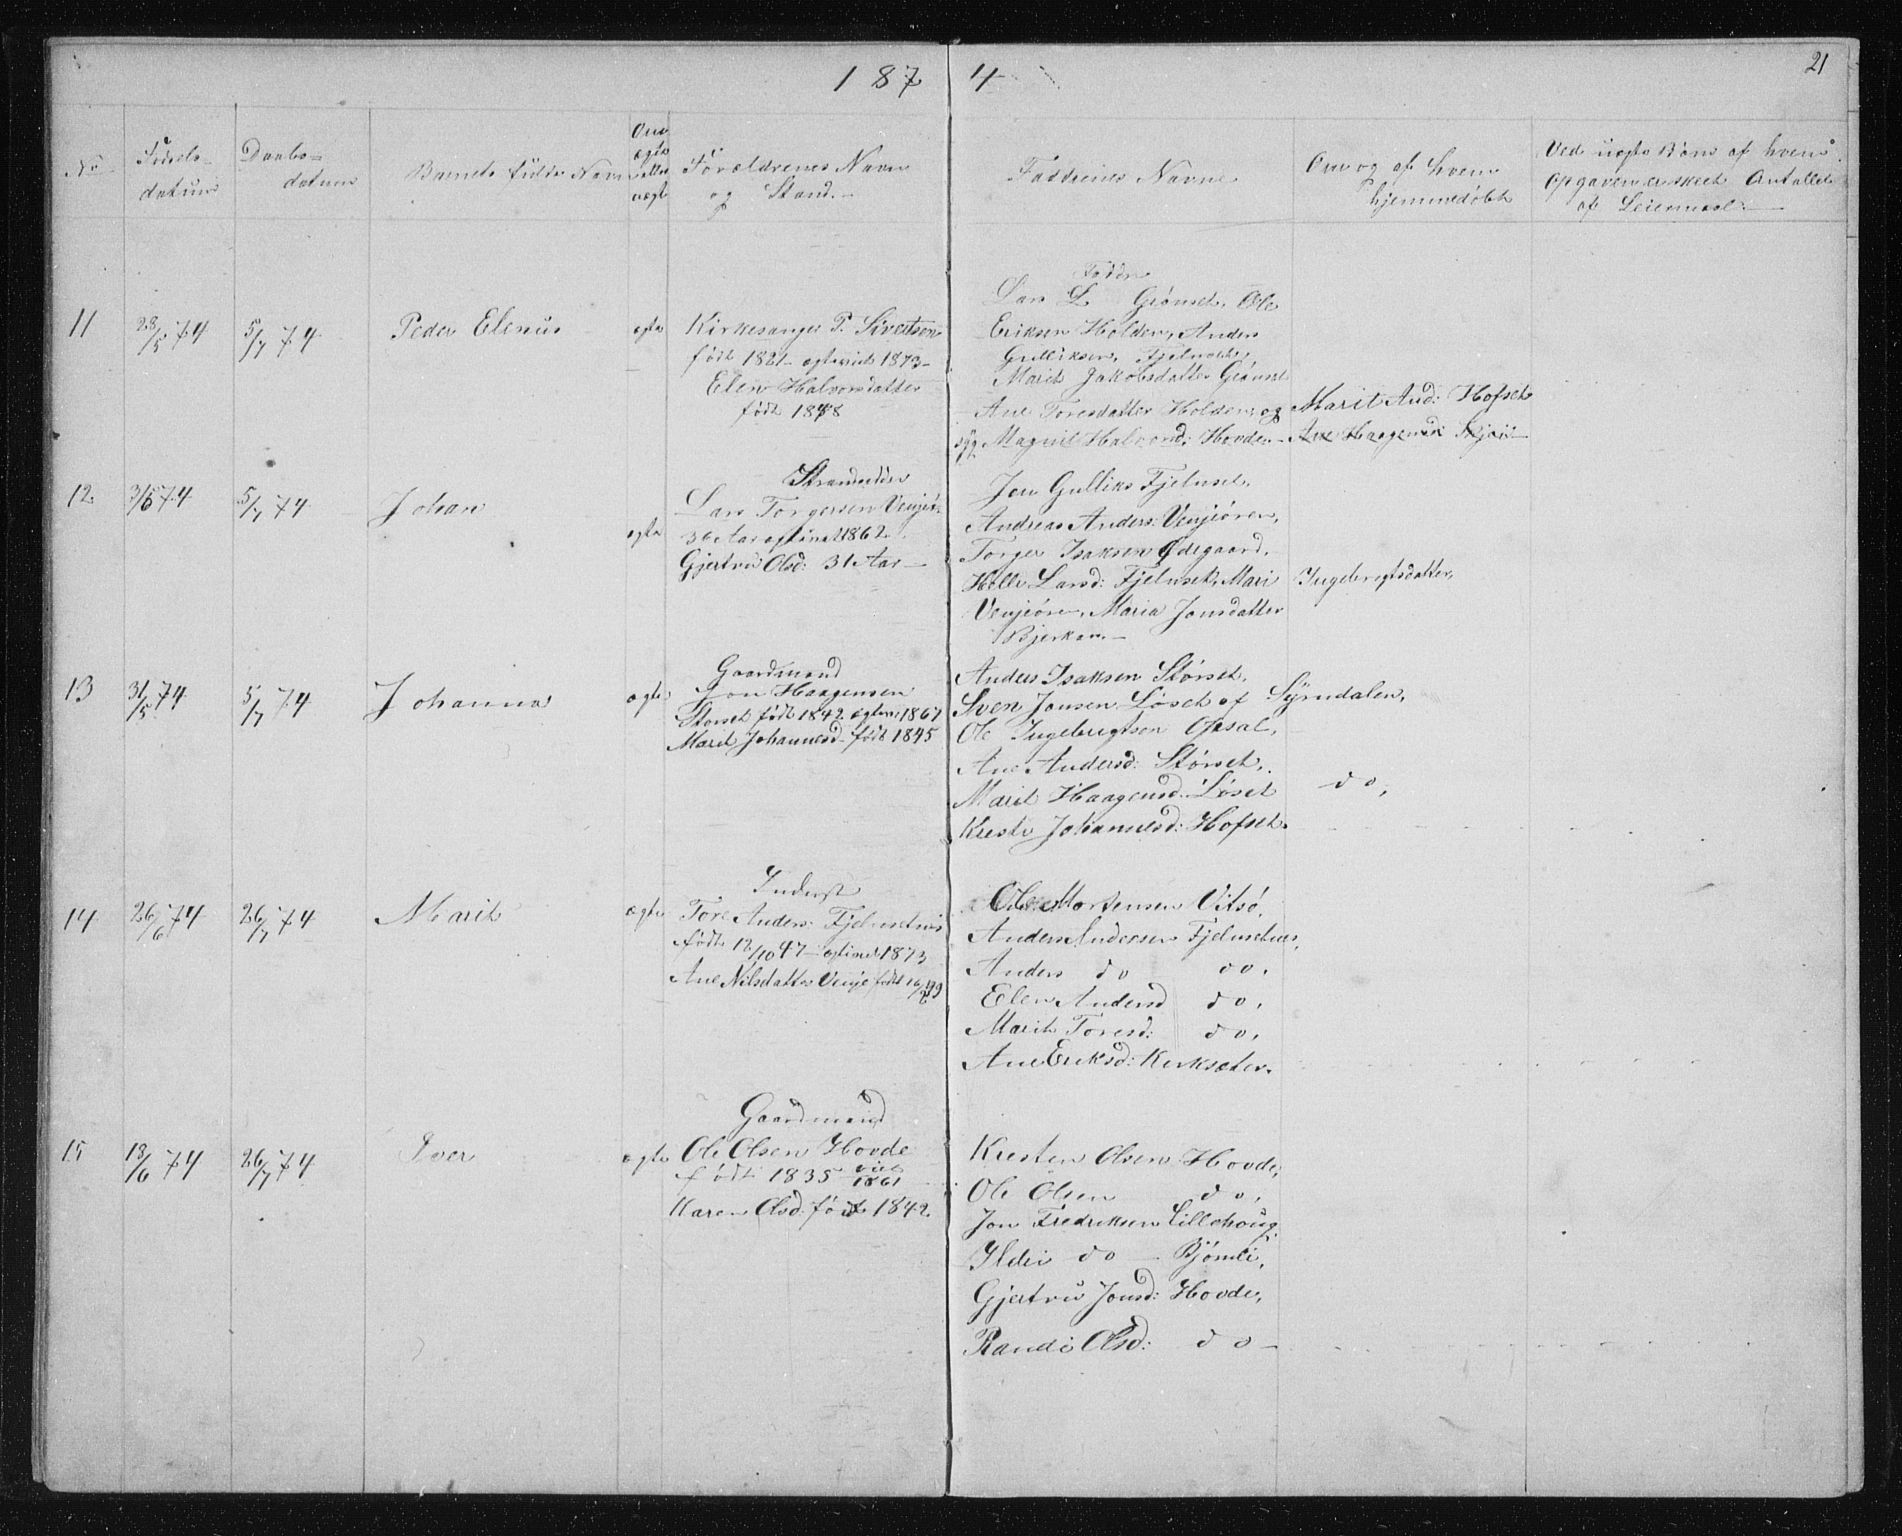 187 4
21
No
Fødsels-
datum
Daabs-
datum
Barnets fulde Navn
Om
ægte
eller
uægte
Forældrenes Navn
og Stand.
Faddrenes Navne
Om og af hvem
hjemmedøbt
Ved uægte Børn af hvem
Opgaven er skeet Antallet
af Leiermaal
11 28/5 74 5/7 74 Peder Elenus ægte
Kirkesanger P. Sivertsen
født 1821 - ægteviet 1873 -
Elen Halvorsdatter
født 1848
Lars L Grønset, Ole
Eriksen Holden, Anders
Gulliksen, Fjelnset,
Marit Jakobsdatter Grønset
Ane Toresdatter Holden, og Marit And: Hofset
Magnil Halvorsd: Hovde - Ane Haagensd:
12 31/5 74 5/7 74 Johan ægte
Strandsidder
Lars Torgersen Venjeør
36 Aar 1862.
Gjertru Olsd: 31 Aar -
Jon Gulliks Fjelnset,
Andreas Anders: Venjeøren,
Torger Isaksen Ødegaard,
Larsd: Fjelnset, Mari Ingebrigtsdatter,
Venjeøren, Maria Jonsdatter
Bjerkan. -
13 31/5 74 5/7 74 Johanna ægte
Gaardmand
Jon Haagensen
Størset født 1842 ægtev: 1867
Marit Johannesd. født 1845
Anders Isaksen Størset,
Sven Jonsen Løset af Sürndalen,
Ole Ingebrigtsen Opsal,
Ane Andersd: Størset,
Marit Haagensd: Løset do,
Johannesd: Hofset.
14 26/6 74 26/7 74 Marit ægte
Inderst
Tore Anders: Fjelnsetnes
født 12/10 47 - 1873
Ane Nilsdatter Venje født
Ole Mortensen Vitsø,
Anders Andersen Fjelnsetnes,
Anders do do.
Elen Andersd do,
Marit Toresd: do,
Ane Eriksd: Kirksæter.
15 18/6 74 26/7 74 Iver ægte
Gaardmand
Ole Olsen Hovde
født 1835 viet
1861
Karen Olsd: født 1842.
Kresten Olsen Hovde,
Ole Olsen do,
Jon Fredriksen Lillehoug,
Ildri do - Bjømli,
Gjertru Jonsd: Hovde,
Randi Olsd: do -